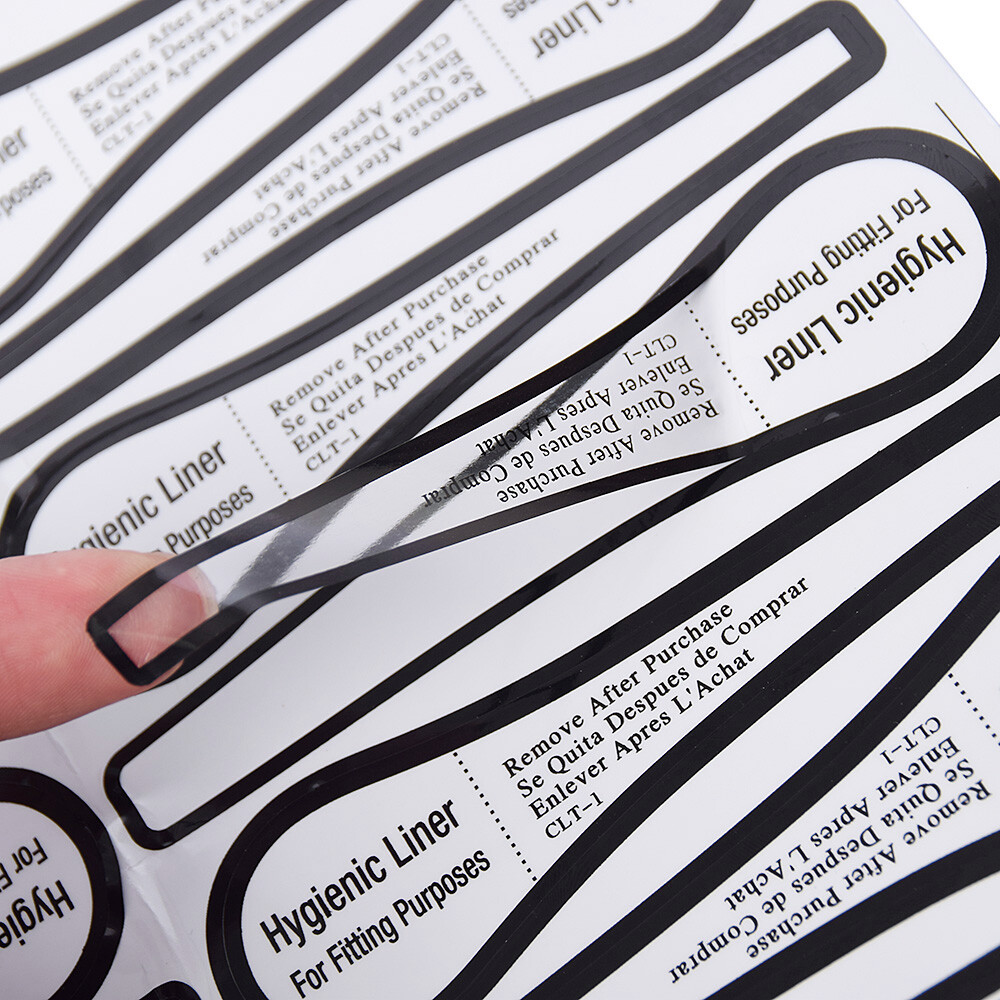 Remove After Purchase
Se Quita Despues
Enlever Apres L'Achat
CLT-1
Liner
Remove After Purchase
Se Quita Despues de Comprar
Enlever Apres L'Achat
CLT-1
Hygienic Liner
For Fitting Purposes
Remove After Purchase
Se Quita Despues de Comprar
Enlever Apres L'Achat
CLT-1
Remove After Purchase
Se Quita Despues de Comprar
Enlever Apres L'Achat
CLT-1
Liner
Purposes
Remove After Purchase
Se Quita Despues de Comprar
Enlever Apres L'Achat
CLT-1
Hygienic Liner
For Fitting Purposes
Remove After Purchase
Se Quita Despues de Comprar
Enlever Apres L'Achat
CLT-1
For